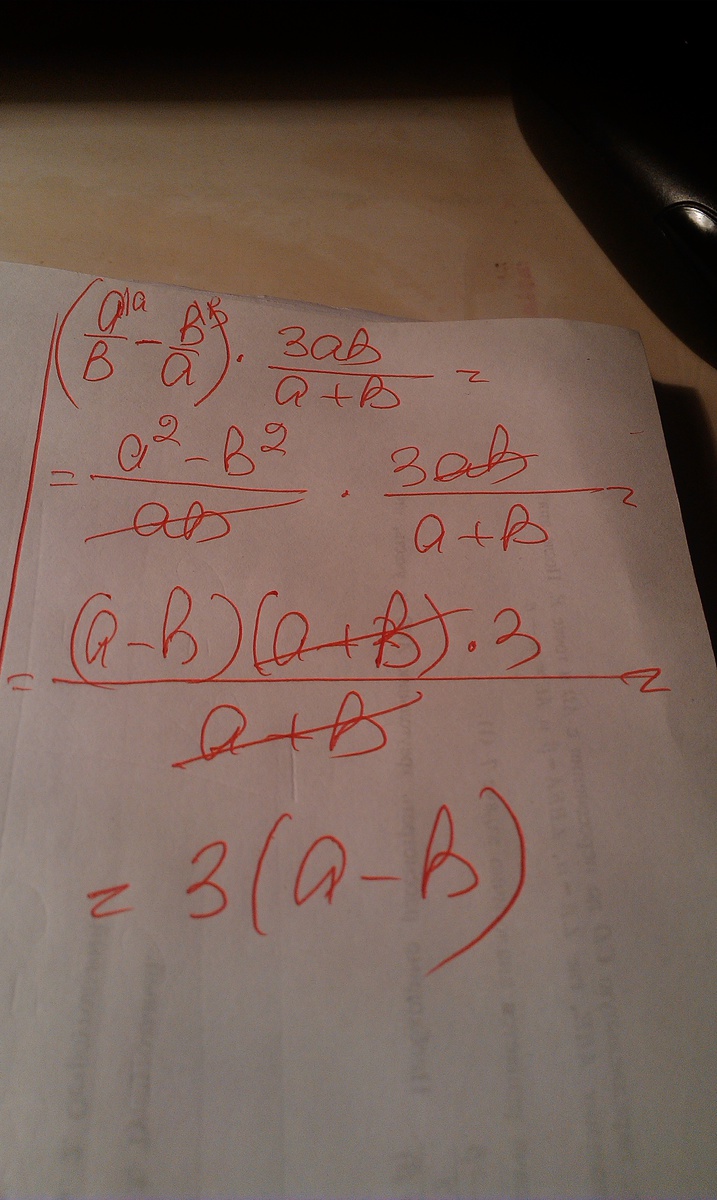 (a\a/B - B\B/a) · 3aB/(a+B) =
= (a²-B²)/(aB) · 3aB/(a+B) =
= (a-B)(a+B)·3/(a+B) =
= 3(a-B)